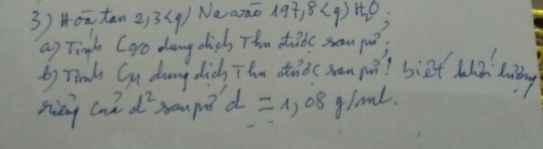 3) Hoà tan 2,3<g) Na vào 197,8<g) H₂O.
a) Tính C% dung dịch Thu được sau pứ.
b) Tính CM dung dịch Thu được sau pứ! biết khối lượng
riêng của d² sau pứ d = 1,08 g/ml.